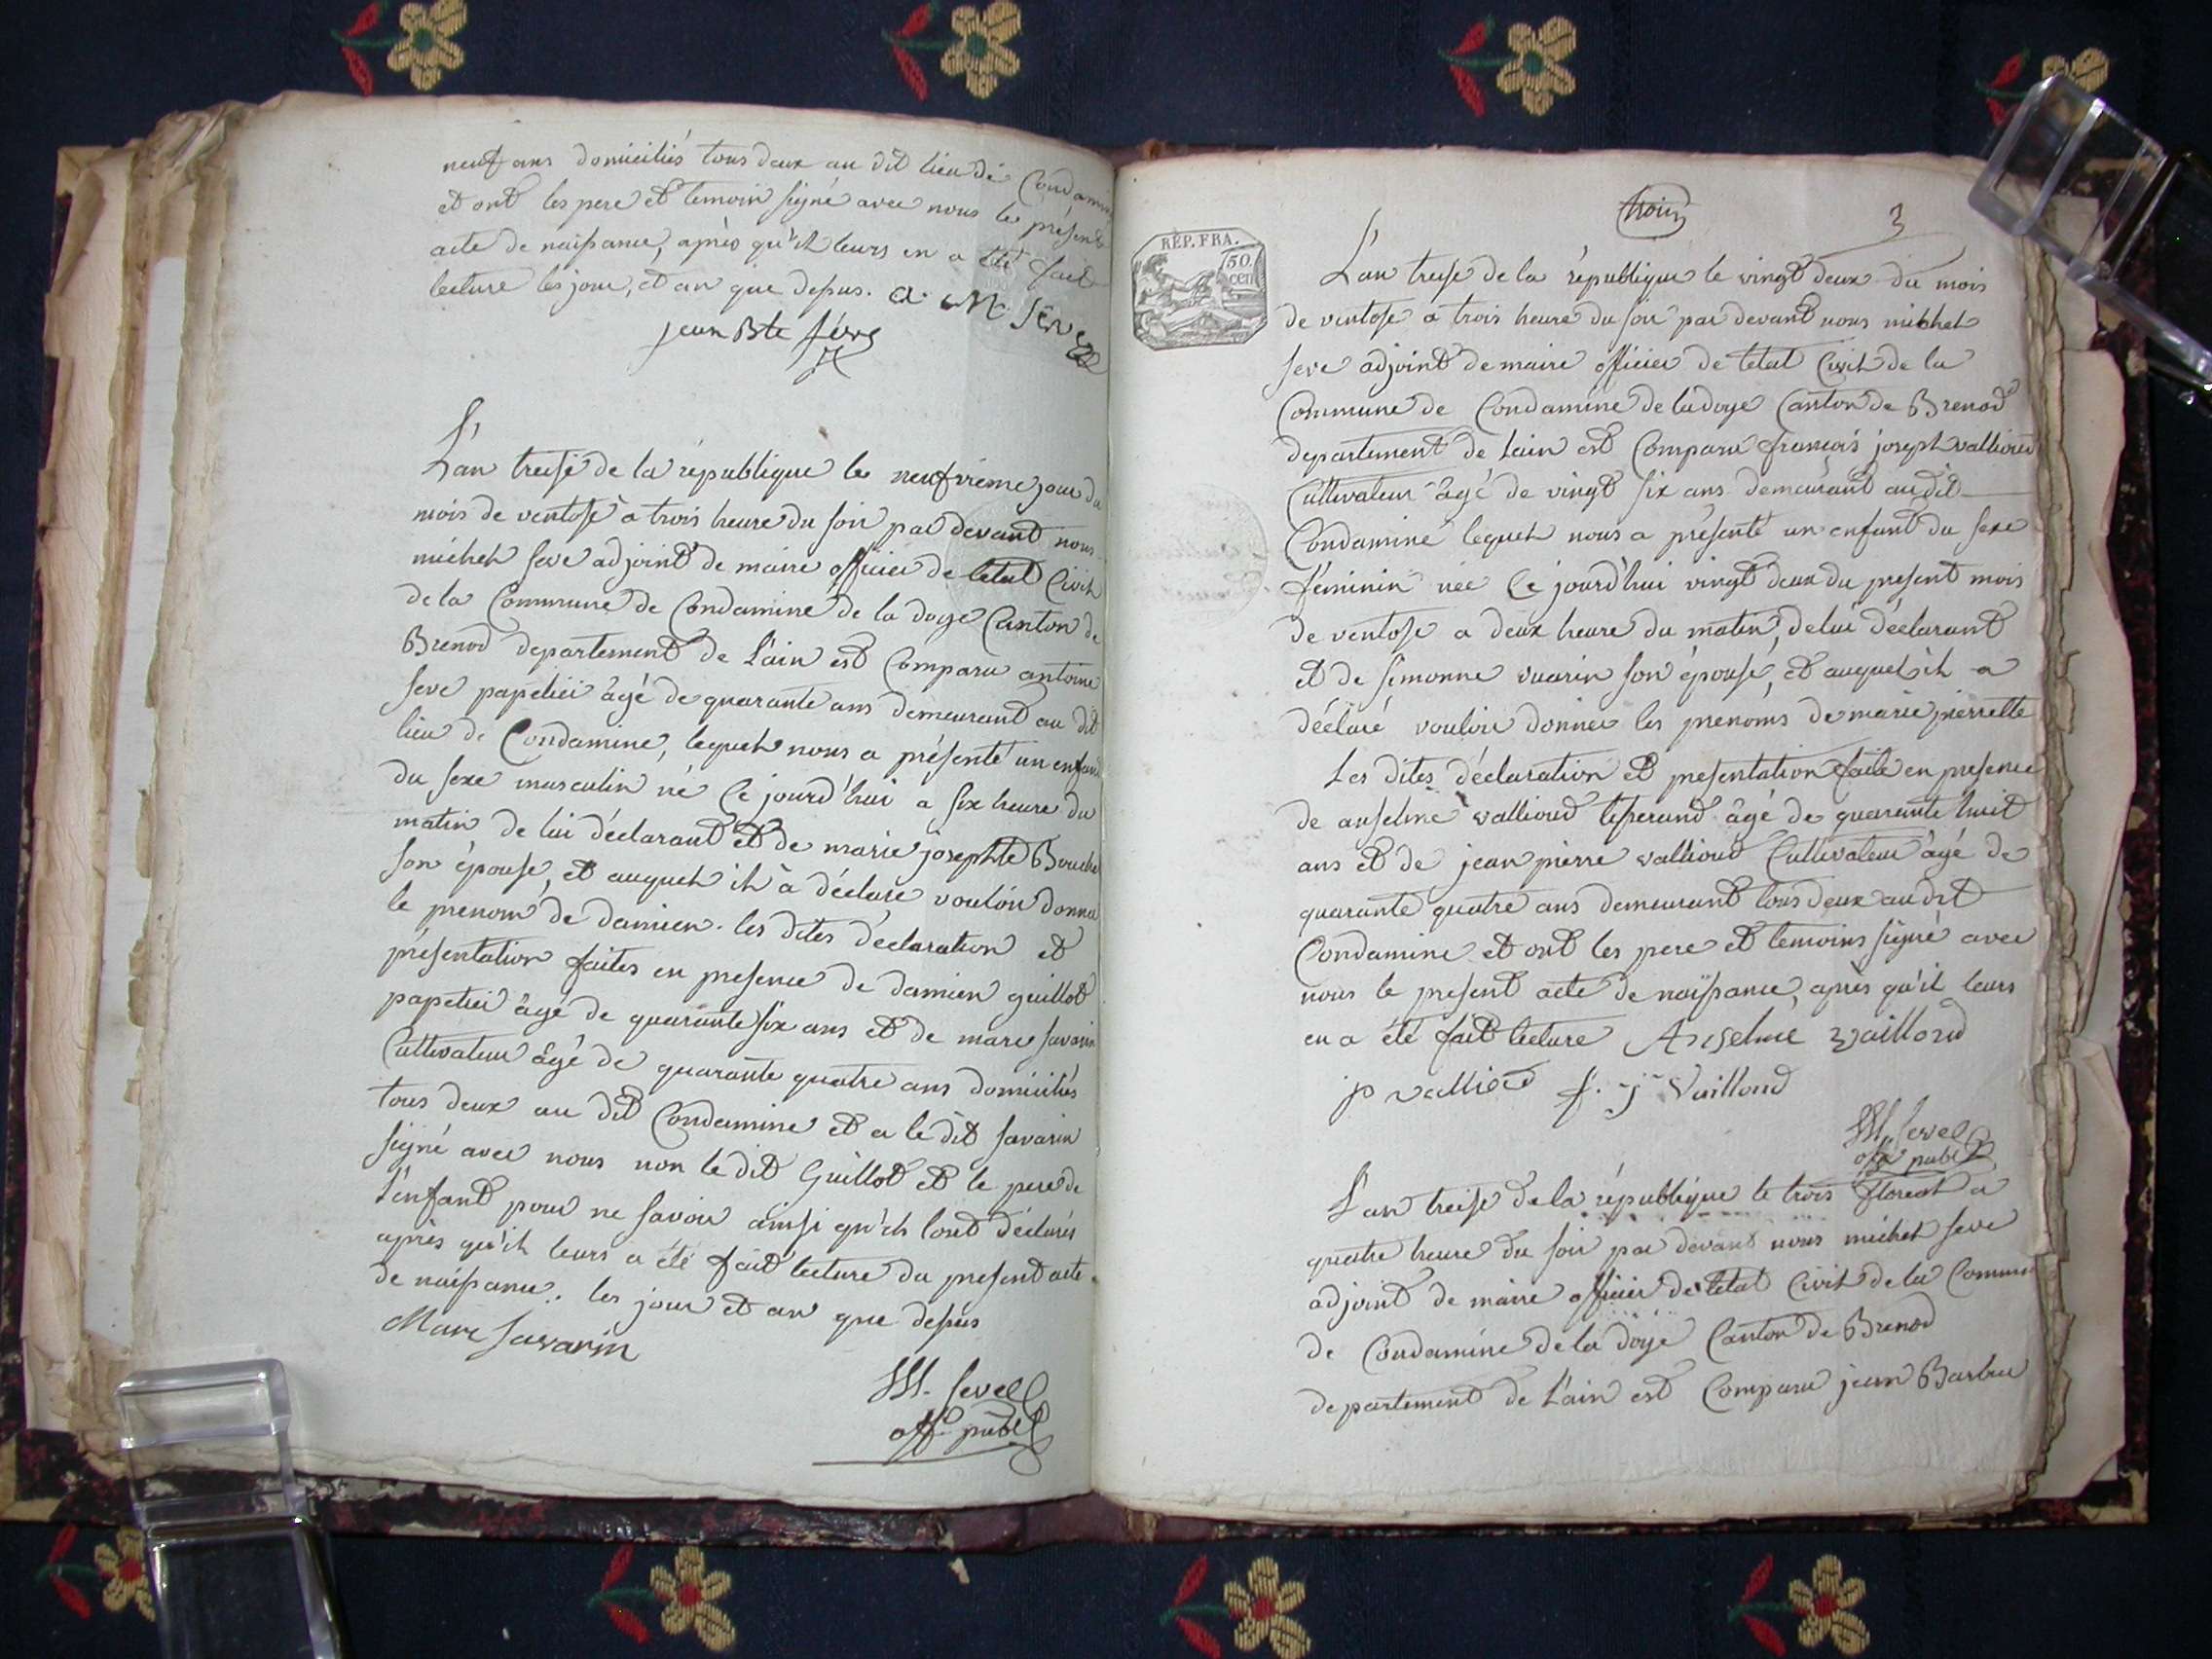 neuf ans domiciliés tous deux au dit lieu de Condamine
et ont les pere et temoin signé avec nous le présent
acte de naissance, après qu'il leurs en a été fait
lecture les jour, et an que dessus. a. M. Seve
jean Bte féve
L'an treise de la république le neufvieme jour du
mois de ventose à trois heure du soir par devant nous
michel seve adjoint de maire officier de letat Civil
de la Commune de Condamine de la doye Canton de
Brenod departement de L'ain est Comparu antoine
seve papetier âgé de quarante ans demeurant au dit
lieu de Condamine, lequel nous a présenté un enfant
du sexe masculin né Ce jourd'hui a six heure du
matin de lui déclarant et de marie josephte
son épouse, et auquel il à déclaré vouloir donner
le prenom de damien. les dites déclaration et
présentation faites en presence de damien guillot
papetier âgé de quarante six ans et de marc savarin
Cultivateur âgé de quarante quatre ans domiciliés
tous deux au dit Condamine et a le dit savarin
signé avec nous non le dit Guillot et le pere de
L'enfant pour ne savoir ainsi qu'ils lont déclarés
après qu'il leurs a été fait lecture du present acte
de naissance. les jour et an que dessus
Marc savarin
M. Seve
off. publ
trois
3
RÉP. FRA.
50.
cen
L'an treise de la république le vingt deux du mois
de ventose a trois heure du soir par devant nous michel
seve adjoint de maire officier de letat Civil de la
Commune de Condamine de ladoye Canton de Brenod
departement de Lain est Comparu françois joseph vallioud
Cultivateur âgé de vingt six ans demeurant audit
Condamine lequel nous a présenté un enfant du sexe
féminin née Ce jourd'hui vingt deux du present mois
de ventose a deux heure du matin, de lui déclarant
et de simonne vuarin son épouse, et auquel il a
déclaré vouloir donner les prenoms de marie pierrette
Les dites déclaration et presentation faite en presence
de anselme vallioud tisserand âgé de quarante huit
ans et de jean pierre vallioud Cultivateur âgé de
quarante quatre ans demeurant tous deux audit
Condamine et ont les pere et temoins signé avec
nous le present acte de naissance, après qu'il leurs
en a été fait lecture Anselme vailloud
jp valliod f. j Vailloud
M. Seve
off publ
L'an treise de la république le trois floreal a
quatre heure du soir par devant nous michel seve
adjoint de maire officier de letat Civil de la Commune
de Condamine de la doye Canton de Brenod
departement de L'ain est Comparu jean Barbu